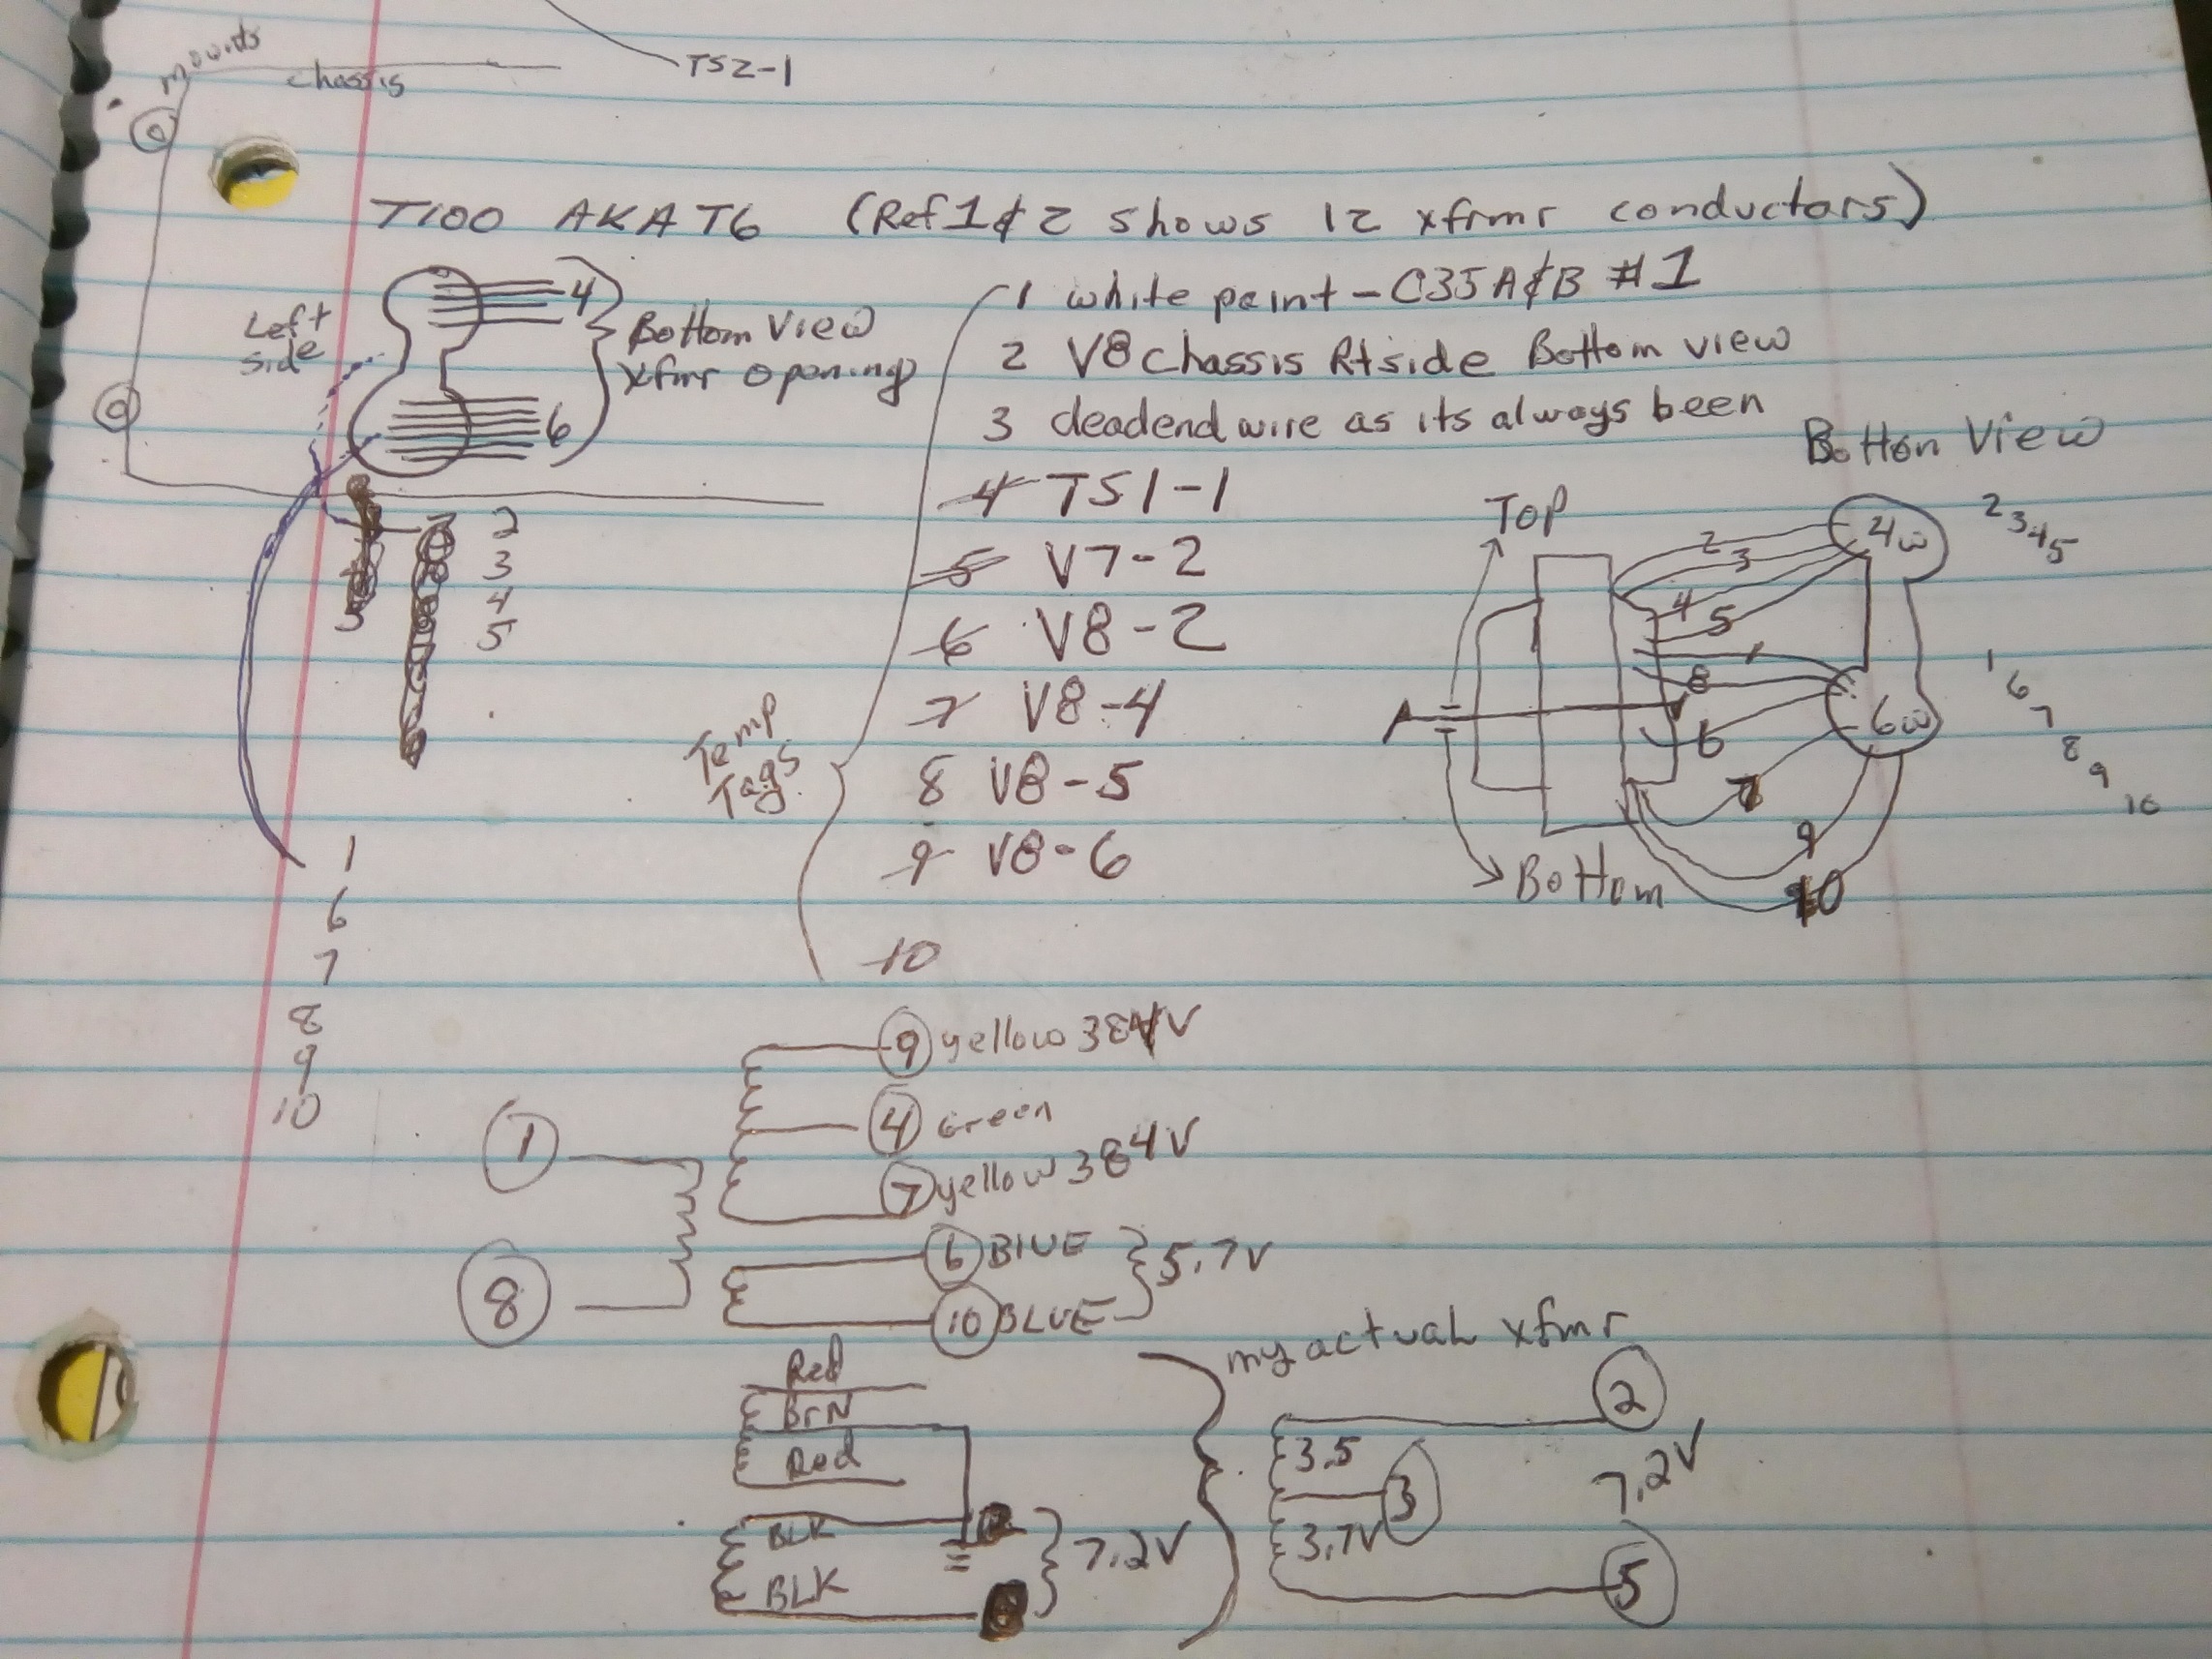 mounts
chassis
TS2-1
T100 AKA T6 (Ref 1 & 2 shows 12 xfrmr conductors)
Left side
4
6
Bottom View
xfmr opening
1 white paint - C35A&B #1
2 V8 chassis Rtside Bottom view
3 deadend wire as its always been
4 TS1-1
5 V7-2
6 V8-2
7 V8-4
8 V8-5
9 V8-6
10
Temp
Tags
2
3
4
5
5
1
6
7
8
9
10
Bottom View
Top
2
3
4
5
1
8
6
7
9
10
4w
6w
A
Bottom
2 3 4 5
1
6
7
8
9
10
1
8
9 yellow 384V
4 Green
7 yellow 384V
6 BLUE
10 BLUE
5.7V
Red
BrN
Red
BLK
BLK
7.2V
my actual xfmr
2
3.5
3
3.7V
5
7.2V